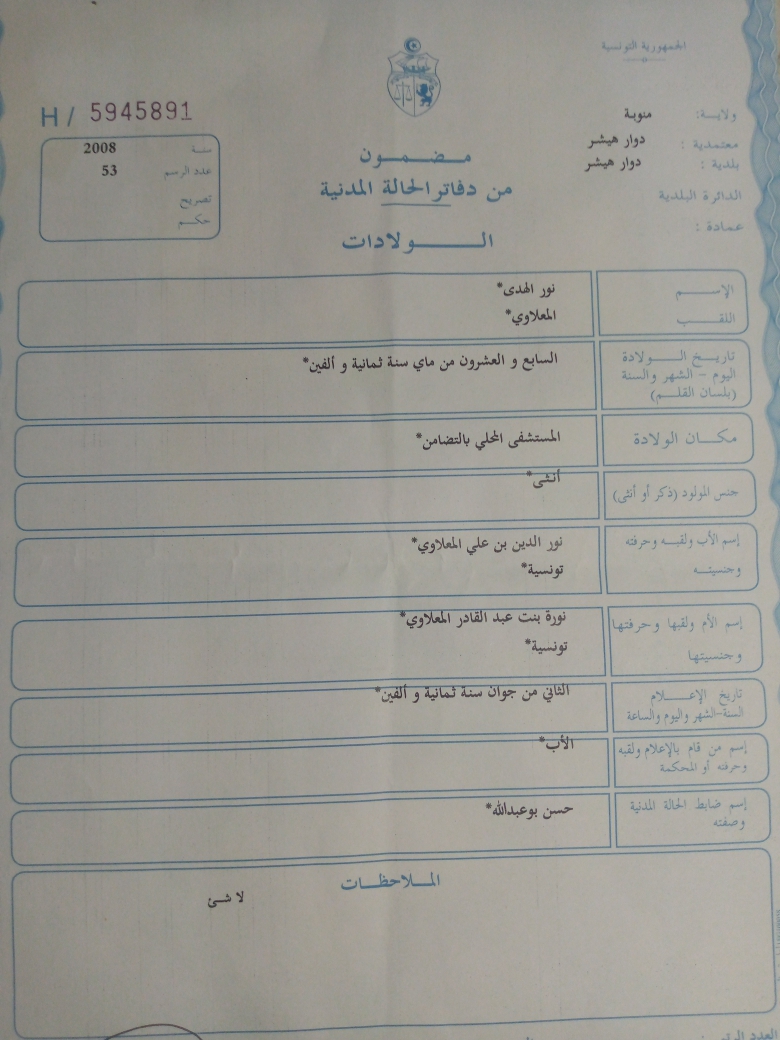 الجمهورية التونسية
H / 5945891
ولاية: منوبة
معتمدية : دوار هيشر
بلدية : دوار هيشر
الدائرة البلدية
عمادة :
سنة 2008
عدد الرسم 53
تصريح
حكم
مضمون
من دفاتر الحالة المدنية
الولادات
الإسم نور الهدى*
اللقب المعلاوي*
تاريخ الولادة
اليوم - الشهر والسنة
(بلسان القلم)
السابع و العشرون من ماي سنة ثمانية و ألفين*
مكان الولادة المستشفى المحلي بالتضامن*
جنس المولود (ذكر أو أنثى) أنثى*
إسم الأب ولقبه وحرفته نور الدين بن علي المعلاوي*
وجنسيته تونسية*
إسم الأم ولقبها وحرفتها نورة بنت عبد القادر المعلاوي*
وجنسيتها تونسية*
تاريخ الإعلام
السنة-الشهر واليوم والساعة
الثاني من جوان سنة ثمانية و ألفين*
إسم من قام بالإعلام ولقبه
وحرفته أو المحكمة
الأب*
إسم ضابط الحالة المدنية
وصفته
حسن بوعبدالله*
الملاحظات
لا شئ